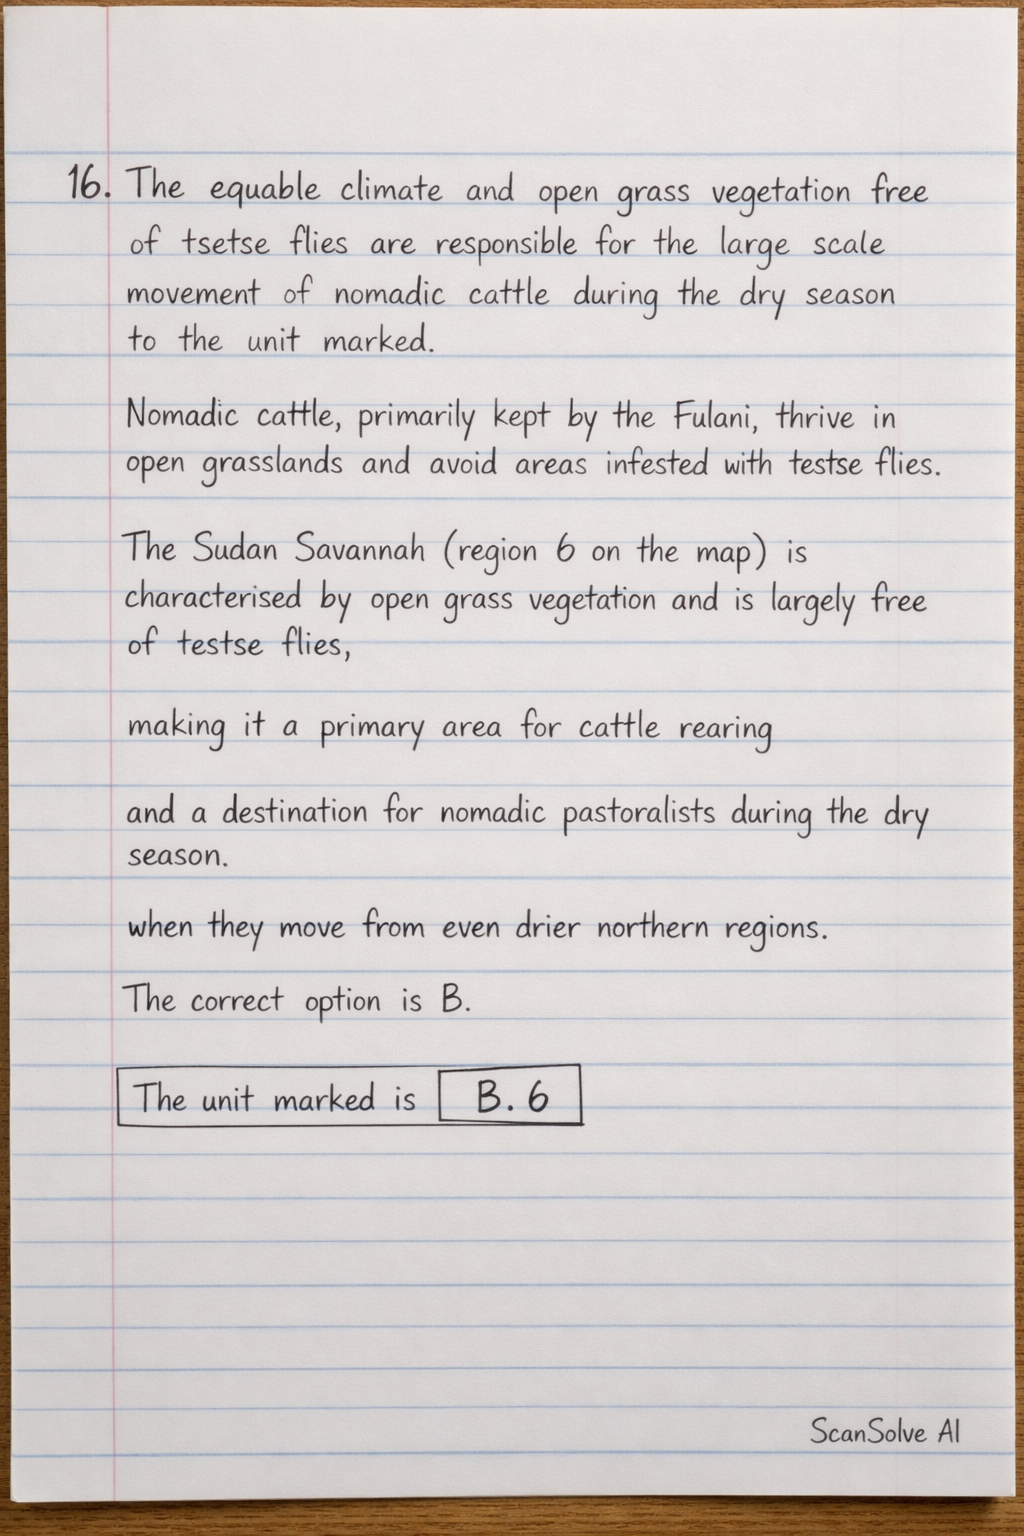 16. The equable climate and open grass vegetation free
of tsetse flies are responsible for the large scale
movement of nomadic cattle during the dry season
to the unit marked.
Nomadic cattle, primarily kept by the Fulani, thrive in
open grasslands and avoid areas infested with testse flies.
The Sudan Savannah (region 6 on the map) is
characterised by open grass vegetation and is largely free
of testse flies,
making it a primary area for cattle rearing
and a destination for nomadic pastoralists during the dry
season.
when they move from even drier northern regions.
The correct option is B.
The unit marked is B. 6
ScanSolve AI